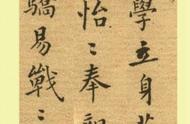 學立身莫
怡〻奉親
驕易戰〻